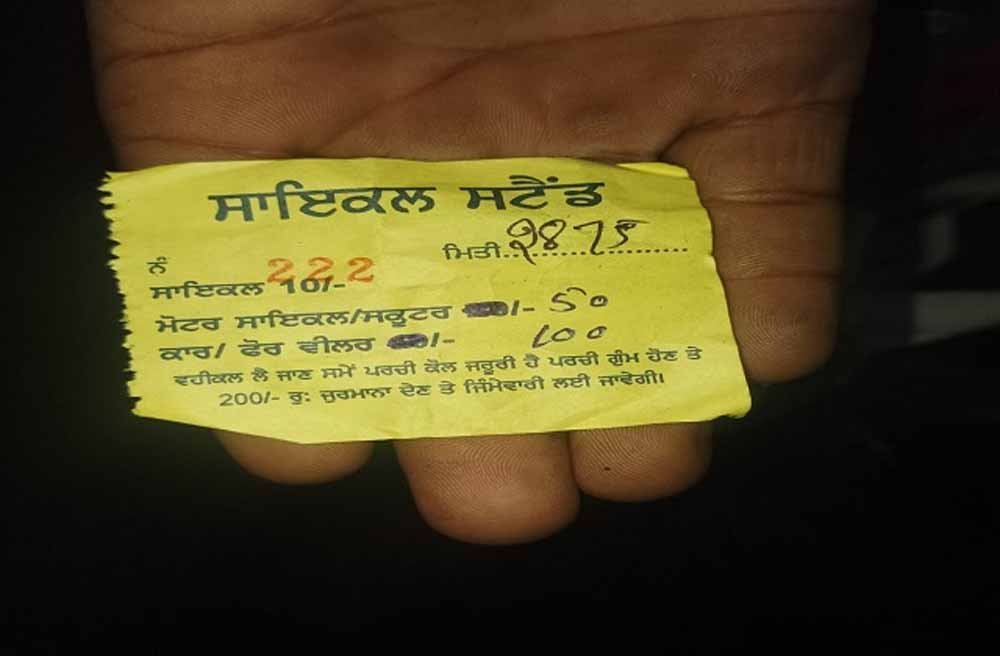 ਸਾਇਕਲ ਸਟੈਂਡ
ਮਿਤੀ.. 9875
ਨੰ 222
ਸਾਇਕਲ 10/-
ਮੋਟਰ ਸਾਇਕਲ/ਸਕੂਟਰ /- 50
ਕਾਰ/ ਫੋਰ ਵੀਲਰ /- 100
ਵਹੀਕਲ ਲੈ ਜਾਣ ਸਮੇਂ ਪਰਚੀ ਕੋਲ ਜਰੂਰੀ ਹੈ ਪਰਚੀ ਗੁੰਮ ਹੋਣ ਤੇ
200/- ਰੁ: ਜੁਰਮਾਨਾ ਦੇਣ ਤੇ ਜਿੰਮੇਵਾਰੀ ਲਈ ਜਾਵੇਗੀ।